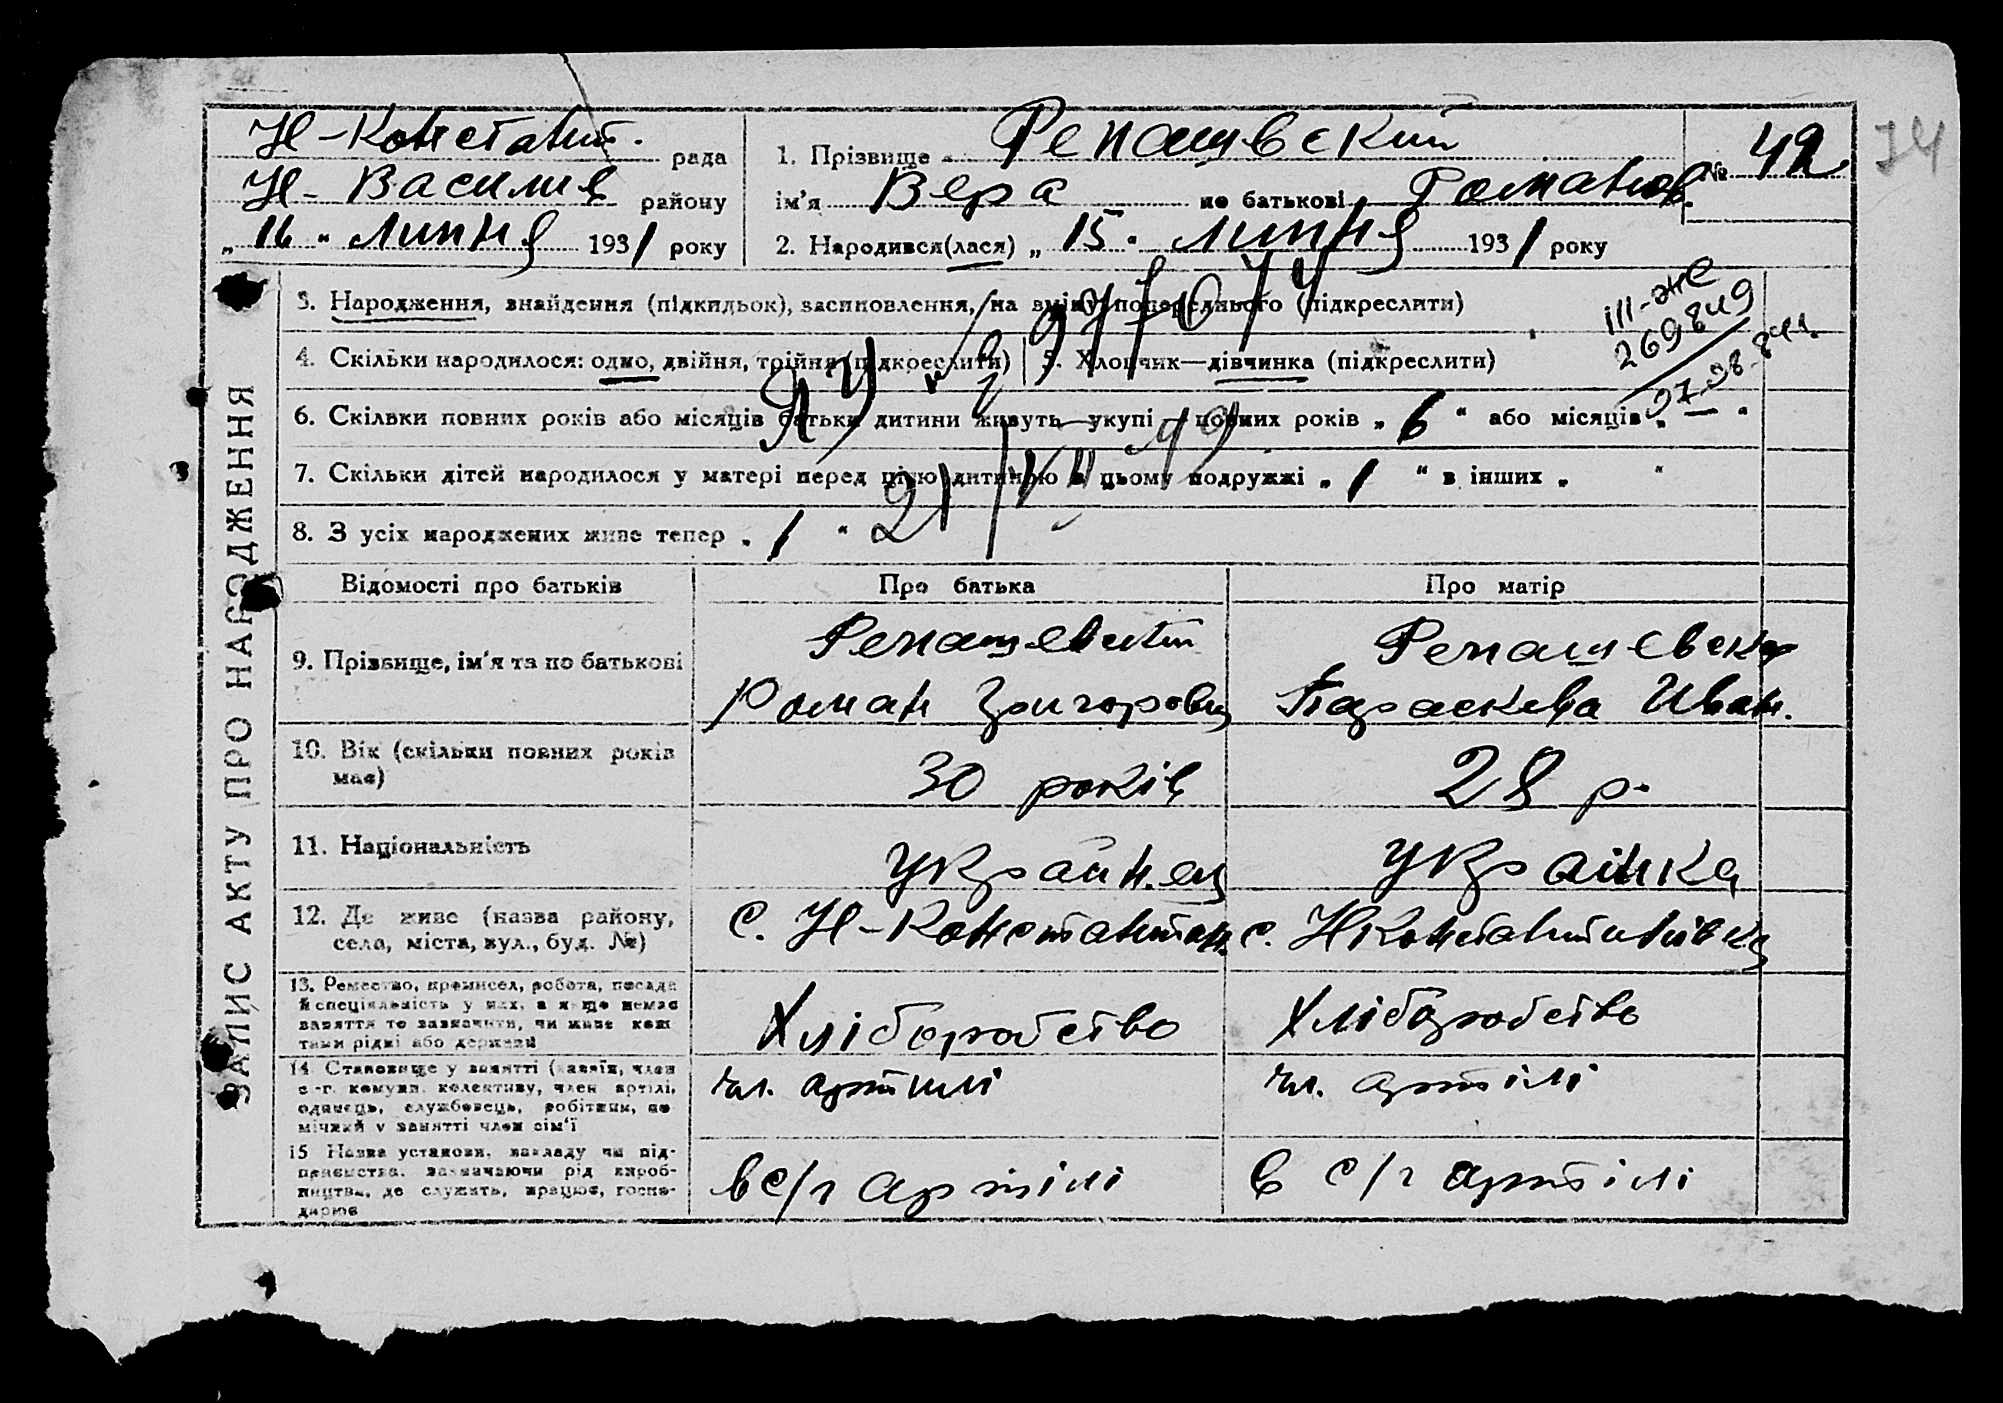 Н-Констант. рада
Н-Василів району
„ 16 “ Липня 1931 року
1. Прізвище Репашевский
№ 42
74
ім'я Вера по батькові Романов.
2. Народився(лася) „ 15 “ Липня 1931 року
ЗАПИС АКТУ ПРО НАРОДЖЕННЯ
3. Народження, знайдення (підкидьок), засиновлення, на зміну попереднього (підкреслити)
III-ЖС
269849
4. Скільки народилося: одно, двійня, трійня (підкреслити)
5. Хлопчик—дівчинка (підкреслити)
6. Скільки повних років або місяців батьки дитини живуть укупі — повних років „ 6 “ або місяців „ — “
7. Скільки дітей народилося у матері перед цією дитиною в цьому подружжі „ 1 “ в інших „ “
8. З усіх народжених живе тепер „ 1 “
Відомості про батьків
Про батька
Про матір
9. Прізвище, ім'я та по батькові
Репашевский
Роман Григорович
Репашевска
Параскева Иван.
10. Вік (скільки повних років
має)
30 років
28 р.
11. Національність
Українец
Українка
12. Де живе (назва району,
село, міста, вул., буд. №)
с. Н-Константин.
с. НКонстантинівка
13. Ремество, промисел, робота, посада
й спеціяльність у них, а якщо немає
заняття то зазначити, чи живе кош
тами рідні або держави
Хліборобство
Хліборобство
14 Становище у занятті (хазяїн, член
с.-г. комуни, колективу, член артілі,
одинець, службовець, робітник, по
мічний у занятті член сім'ї
чл. артилі
чл. артілі
15 Назва установи, закладу чи під-
приємства, зазначаючи рід вироб-
ництва, де служить, працює, госпо-
дарює
в с/г артілі
в с/г артілі